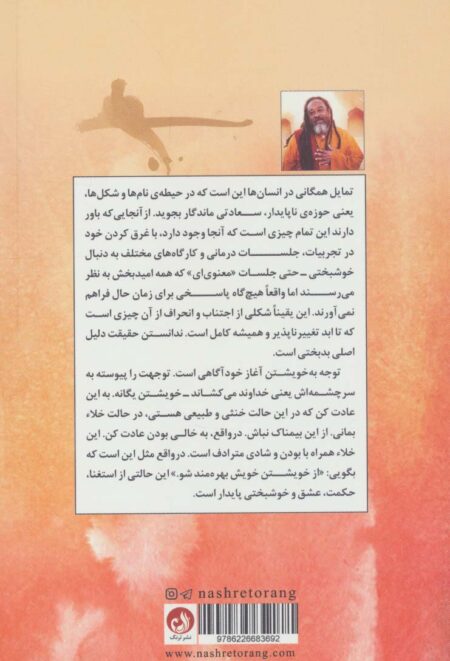 تمایل همگانی در انسان‌ها این است که در حیطه‌ی نام‌ها و شکل‌ها،
یعنی حوزه‌ی ناپایدار، سعادتی ماندگار بجوید. از آنجایی که باور
دارند این تمام چیزی است که آنجا وجود دارد، با غرق کردن خود
در تجربیات، جلسات درمانی و کارگاه‌های مختلف به دنبال
خوشبختی ـ حتی جلسات «معنوی‌ای» که همه امیدبخش به نظر
می‌رسند اما واقعاً هیچ‌گاه پاسخی برای زمان حال فراهم
نمی‌آورند. این یقیناً شکلی از اجتناب و انحراف از آن چیزی است
که تا ابد تغییرناپذیر و همیشه کامل است. ندانستن حقیقت دلیل
اصلی بدبختی است.
توجه به‌خویشتن آغاز خودآگاهی است. توجهت را پیوسته به
سرچشمه‌اش یعنی خداوند می‌کشاند ـ خویشتن یگانه. به این
عادت کن که در این حالت خنثی و طبیعی هستی، در حالت خلاء
بمانی. از این بیمناک نباش. درواقع، به خالی بودن عادت کن. این
خلاء همراه با بودن و شادی مترادف است. درواقع مثل این است که
بگویی: «از خویشتن خویش بهره‌مند شو.» این حالتی از استغنا،
حکمت، عشق و خوشبختی پایدار است.
nashretorang
نشر ترنگ
9786226683692
www.nashretorang.com